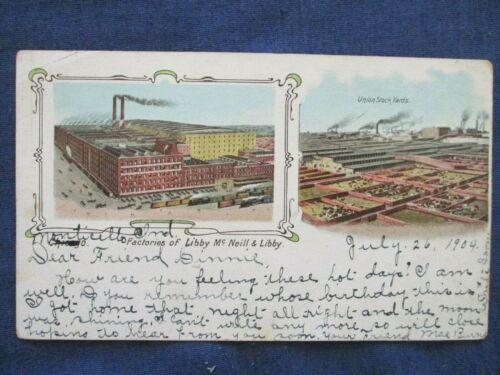 Union Stock Yards.
Factories of Libby Mc Neill & Libby
Monticello, Ind.
July. 26, 1904.
Dear Friend Minnie,
How are you feeling these hot days? I am
well. Do you remember whose birthday this is?
I got home that night all right and the moon
was shining. Can't write any more so will close
hoping to hear from you soon. Your friend Mae